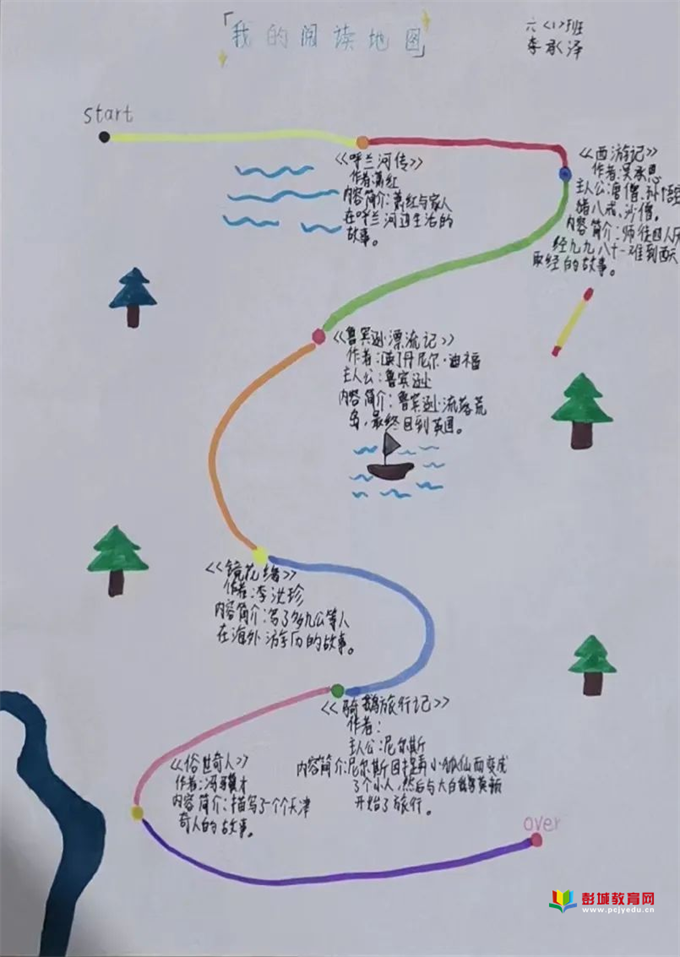 「我的阅读地图」
六〈1〉班
李承泽
start
《呼兰河传》
作者:萧红
内容简介:萧红与家人
在呼兰河边生活的
故事。
《西游记》
作者:吴承恩
主人公:唐僧、孙悟空
猪八戒、沙僧。
内容简介:师徒四人历
经九九八十一难到西天
取经的故事。
《鲁宾逊·漂流记》
作者:[英]丹尼尔·迪福
主人公:鲁宾逊
内容简介:鲁宾逊·流落荒
岛,最终回到英国。
《镜花缘》
作者:李洪珍
内容简介:写了多九公等人
在海外游历的故事。
《骑鹅旅行记》
作者:
主人公:尼尔斯
内容简介:尼尔斯因捉弄小狐仙而变成
了个小人,然后与大白鹅莫顿
开始了旅行。
《俗世奇人》
作者:冯骥才
内容简介:描写了一个个天津
奇人的故事。
over
彭城教育网
www.pcjyedu.cn